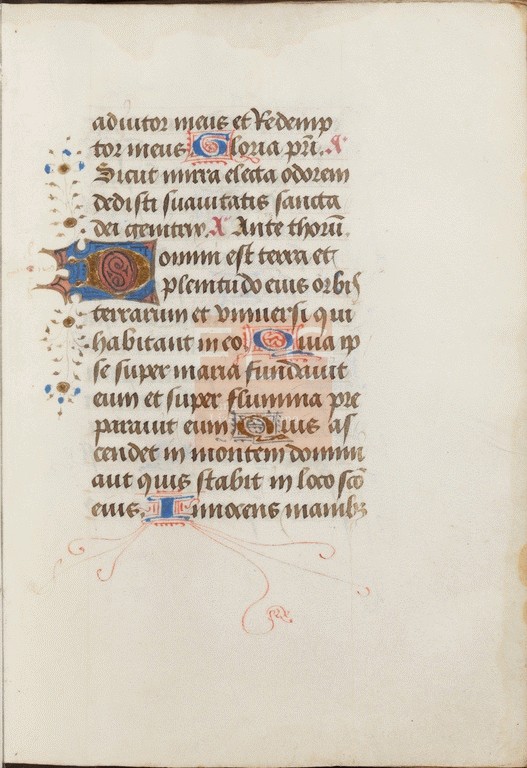 adiutor meus et Redemp
tor meus Gloria pr̃i. A
Sicut mirra electa odorem
dedisti suauitatis sancta
dei genitrix. A Ante thorũ.
Domini est terra et
plenitudo eius orbis
terrarum et vniuersi qui
habitant in eo. Quia ip
se super maria fundauit
eum et super flumina pre
parauit eum Quis as
cendet in montem domini
aut quis stabit in loco scõ
eius. Innocens manibꝫ